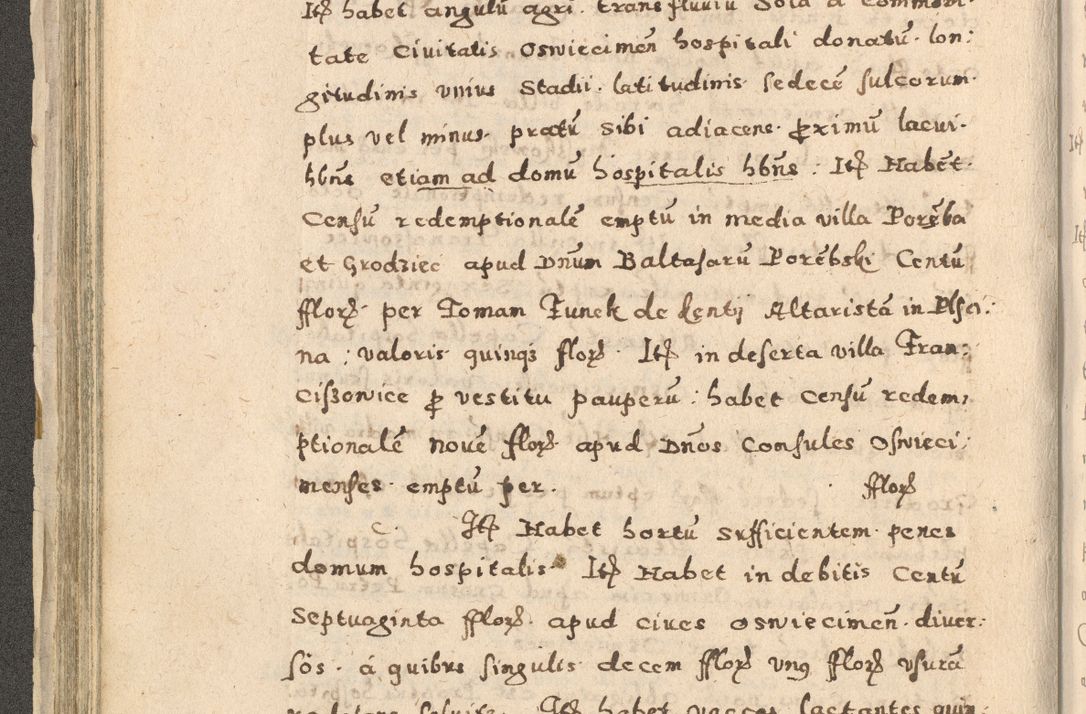 Itē habet angulū agri · trans fluviū Sola a commodi-
tate Ciuitatis Oswiecimeñ hospitali donatū · lon:
gitudinis vnius Stadii · latitudinis sedecē sulcorum
plus vel minus · pratū sibi adiacens · ꝓximū lacui ·
hbñs etiam ad domū hospitalis hbñs : Itē Habēt ·
Censū redemptionalē emptū in media villa Porēba
et Grodziec apud Dnūm Baltasarū Porēbski Centū
fflorꝫ · per Tomam Tunek de Kentÿ Altaristā in Plsci:
na : valoris quinqꝫ florꝫ · Itē in deserta villa Fran:
Ciſzowice ꝓ vestitu pauperū : habet Censū redem:
ptionalē novē florꝫ apud Dños Consules Oswieci:
menses · emptū per · fflorꝫ
Itē Habet hortū sufficientem · penes
domum hospitalis · Itē Habet in debitis Centū
Septuaginta fflorꝫ · apud ciues Oswiecimeñ · diuer:
sos · á quibus singulis decem fflorꝫ vnꝯ fflorꝫ vsurā
Itē habet vaccas lactantes quin